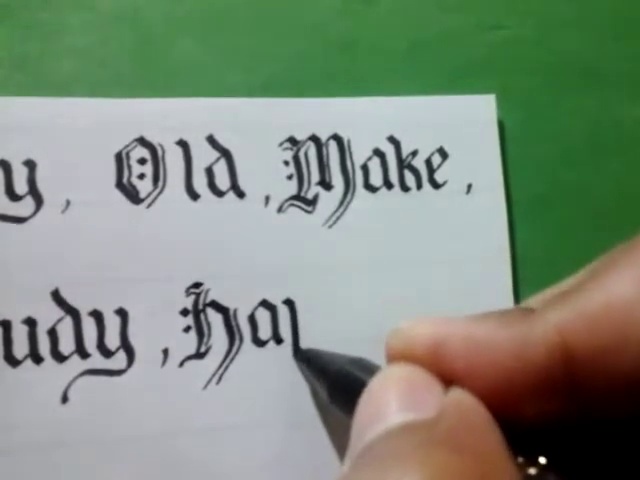 y, Old, Make,
udy, Ha